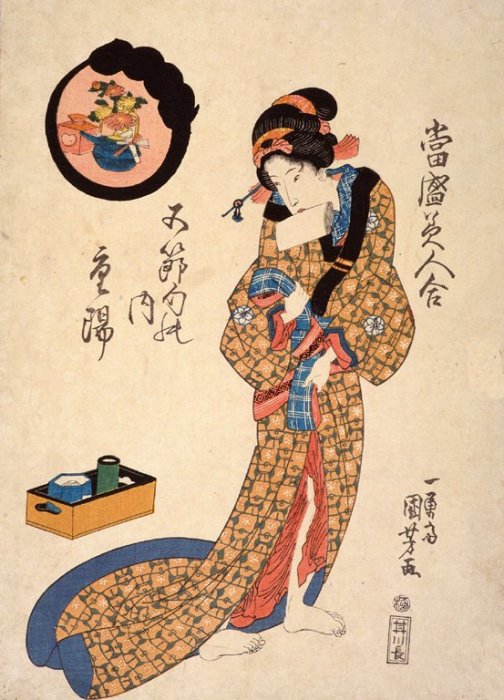 當盛美人合
五節句の内
重陽
一勇斎
國芳画
極
井川長